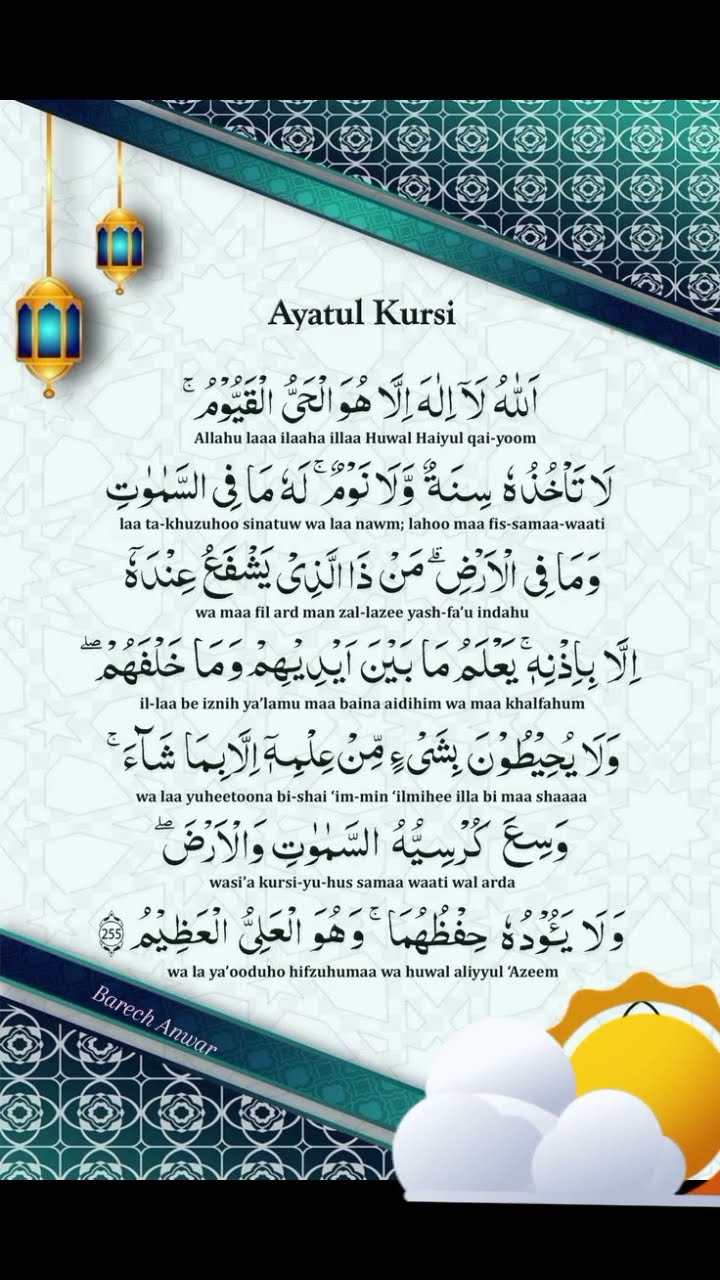 Ayatul Kursi
اَللّٰهُ لَاۤ اِلٰهَ اِلَّا هُوَ الْحَیُّ الْقَیُّوْمُ ۚ
Allahu laaa ilaaha illaa Huwal Haiyul qai-yoom
لَا تَاْخُذُهٗ سِنَةٌ وَّلَا نَوْمٌ ؕ لَهٗ مَا فِی السَّمٰوٰتِ
laa ta-khuzuhoo sinatuw wa laa nawm; lahoo maa fis-samaa-waati
وَمَا فِی الْاَرْضِ ؕ مَنْ ذَا الَّذِیْ یَشْفَعُ عِنْدَهٗۤ
wa maa fil ard man zal-lazee yash-fa’u indahu
اِلَّا بِاِذْنِهٖ ۚ یَعْلَمُ مَا بَیْنَ اَیْدِیْهِمْ وَمَا خَلْفَهُمْ ۖ
il-laa be iznih ya’lamu maa baina aidihim wa maa khalfahum
وَلَا یُحِیْطُوْنَ بِشَیْءٍ مِّنْ عِلْمِهٖۤ اِلَّا بِمَا شَآءَ ۚ
wa laa yuheetoona bi-shai ‘im-min ‘ilmihee illa bi maa shaaaa
وَسِعَ كُرْسِیُّهُ السَّمٰوٰتِ وَالْاَرْضَ ۖ
wasi’a kursi-yu-hus samaa waati wal arda
وَلَا یَـُٔوْدُهٗ حِفْظُهُمَا ۚ وَهُوَ الْعَلِیُّ الْعَظِیْمُ 255
wa la ya’ooduho hifzuhumaa wa huwal aliyyul ‘Azeem
Barech Anwar